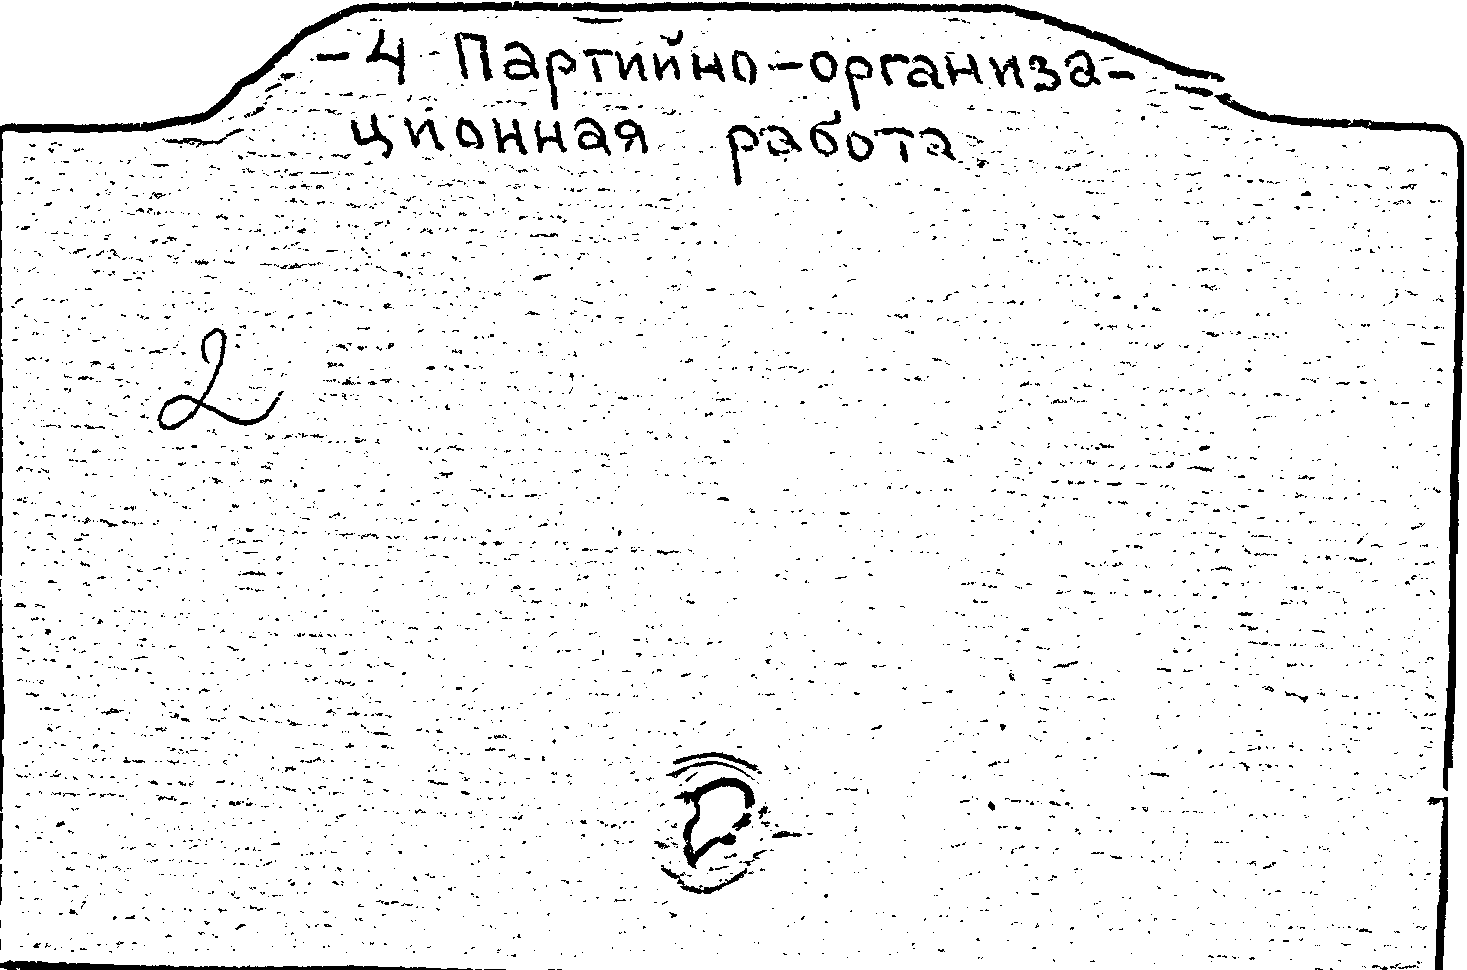 -4 Партийно-организа-
ционная работа.
2